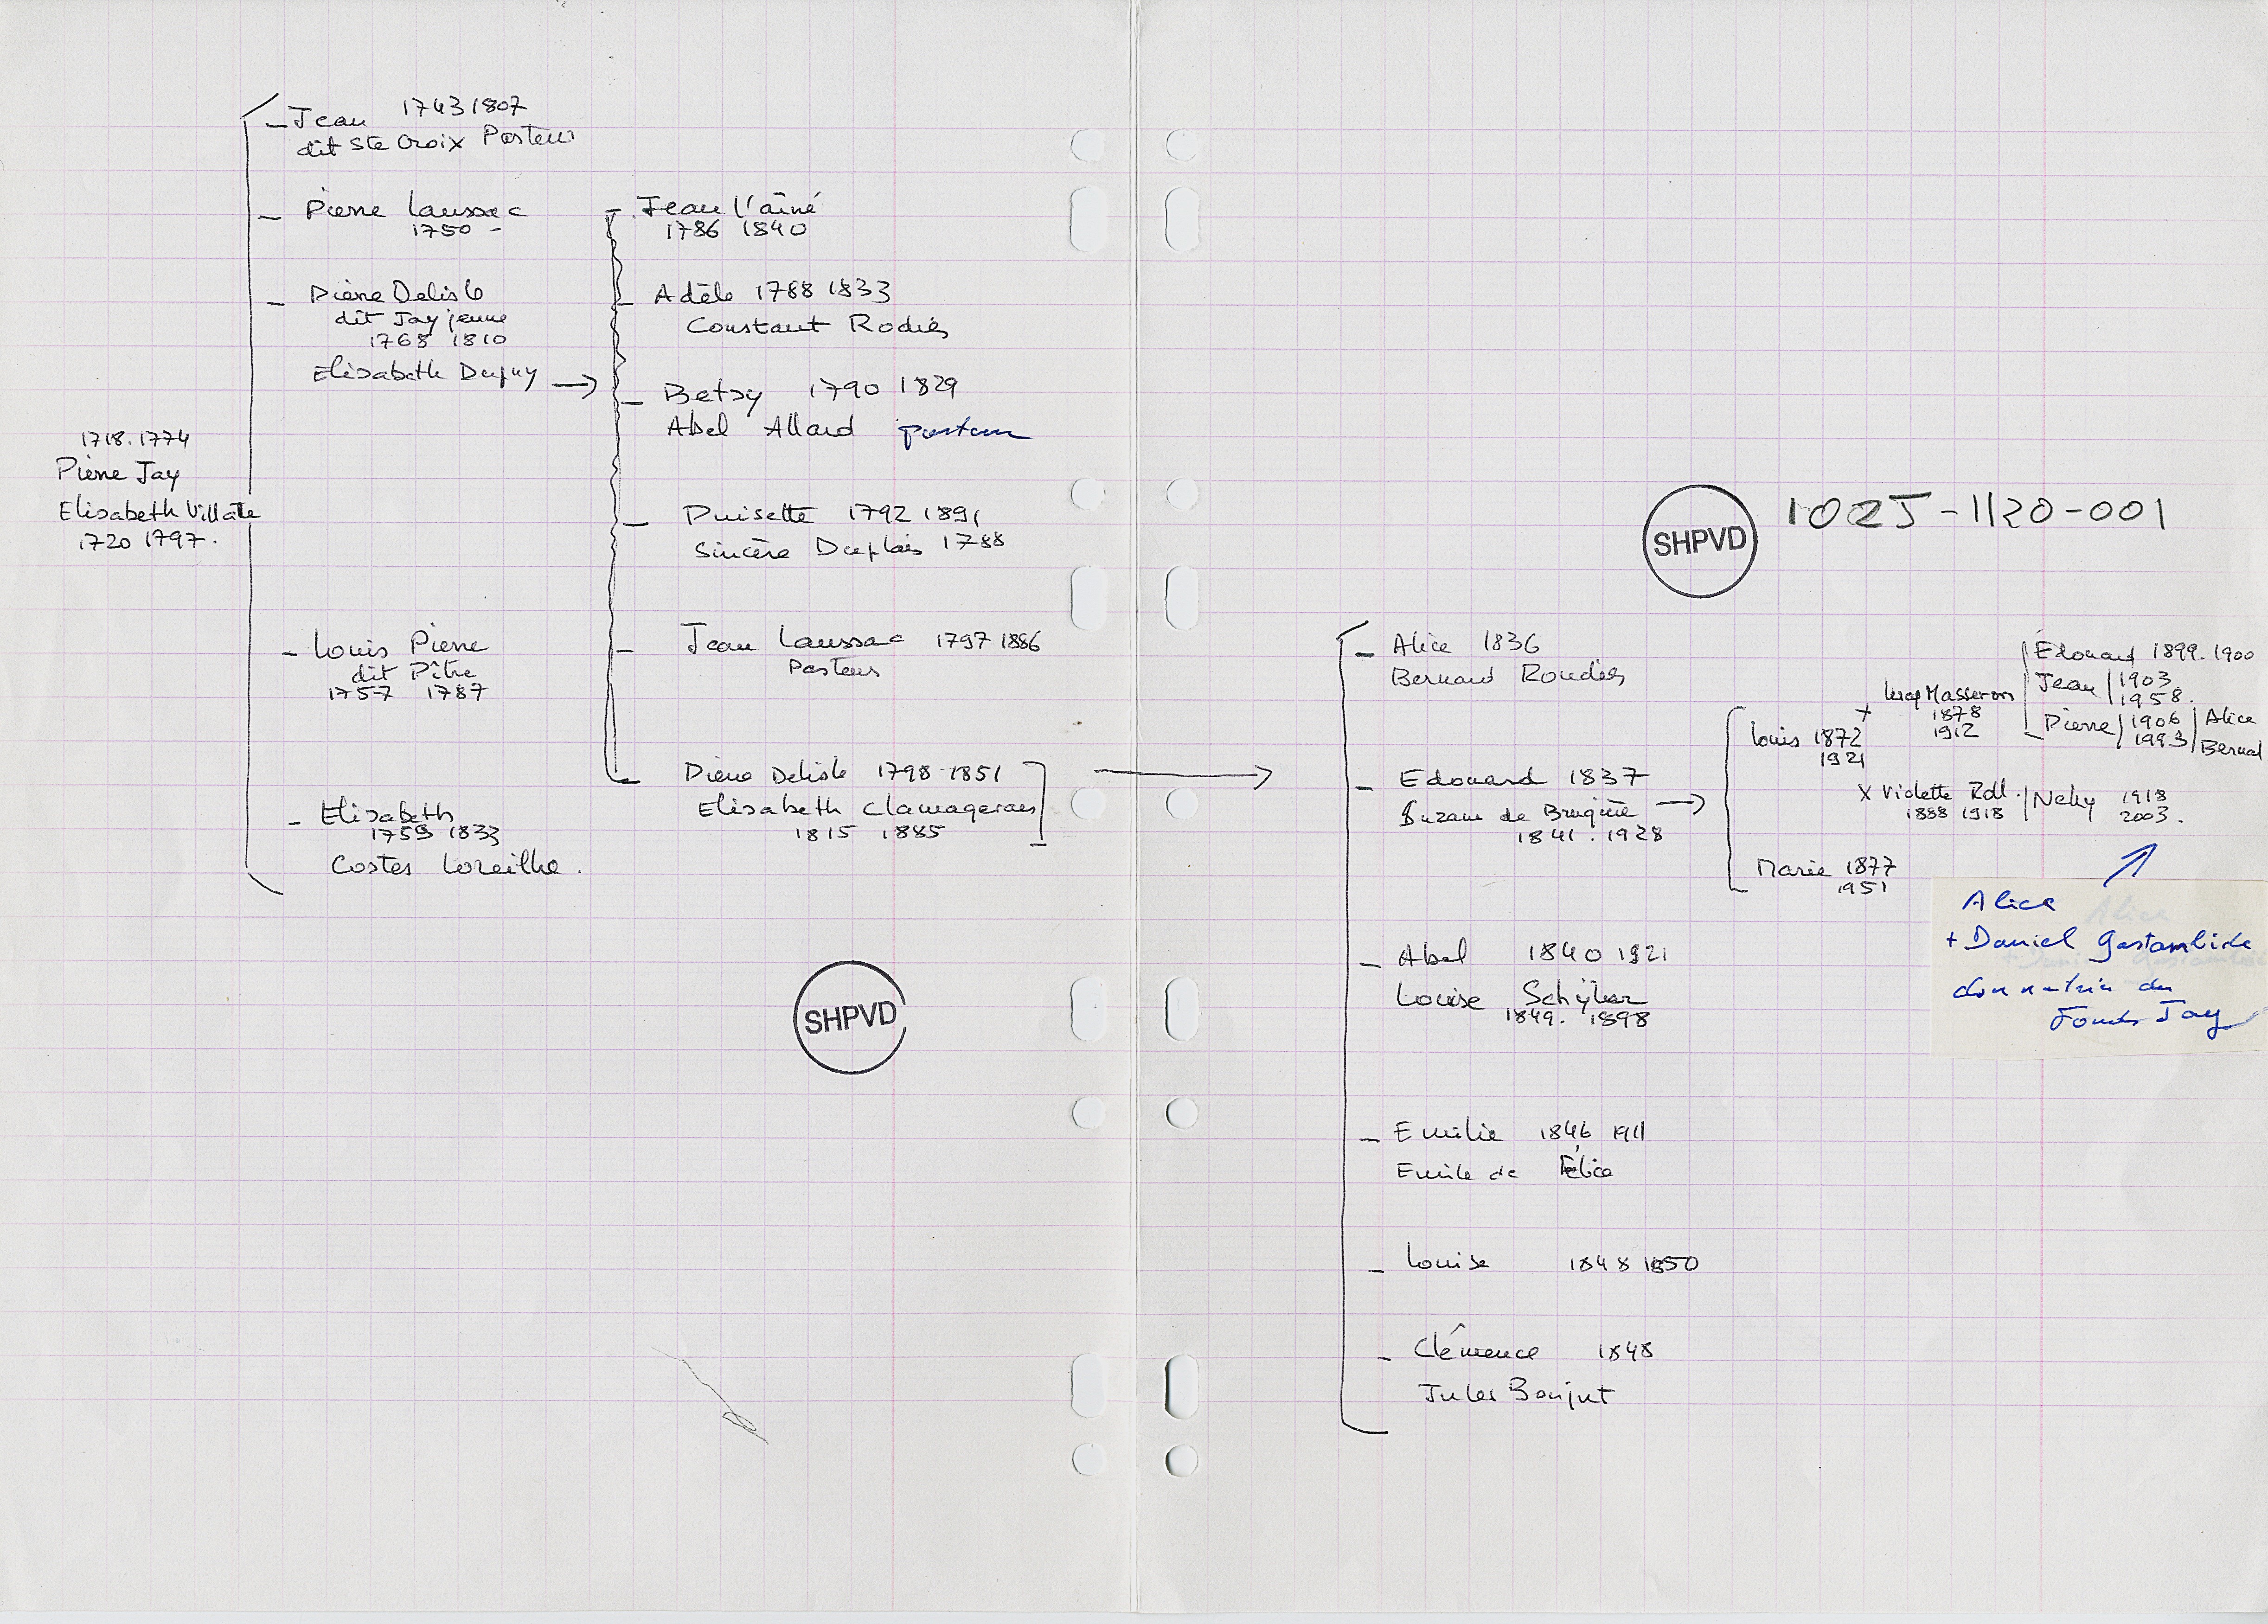 Jean 1743 1807
dit Ste Croix Pasteur
Pierre Laussac
1750 -
Pierre Delisle
dit Jay jeune
1768 1810
Elisabeth Dupuy
1718.1774
Pierre Jay
Elisabeth Villate
1720 1797.
Louis Pierre
dit Pître
1757 1787
Elisabeth
1759 1833
Costes Loreilhe.
Jean l'aîné
1786 1840
Adèle 1788 1833
Constant Rodiés
Betsy 1790 1829
Abel Allard pasteur
1792 1891
Sincère Duplais 1788
Jean Laussac 1797 1886
Pasteur
Pierre Delisle 1798 1851
Elisabeth Clamageran
1815 1885
SHPVD
SHPVD 102J-1120-001
Alice 1836
Bernard Roudiés
Edouard 1837
Suzane de Brugière
1841. 1928
Abel 1840 1921
Louise Schÿler
1849. 1898
Emilie 1846 1911
Emile de
Louise 1848 1850
Clémence 1848
Jules Bonjut
Louis 1872
1921
+ Masseron
1878
1912
Edouard 1899. 1900
Jean 1903
1958.
Pierre 1906
1993
Alice
Bernard
X Violette Roll.
1888 1918
Nelly 1918
2003.
Marie 1877
1951
Alice
+ Daniel Gastambide
donnatrice du
Fonds Jay